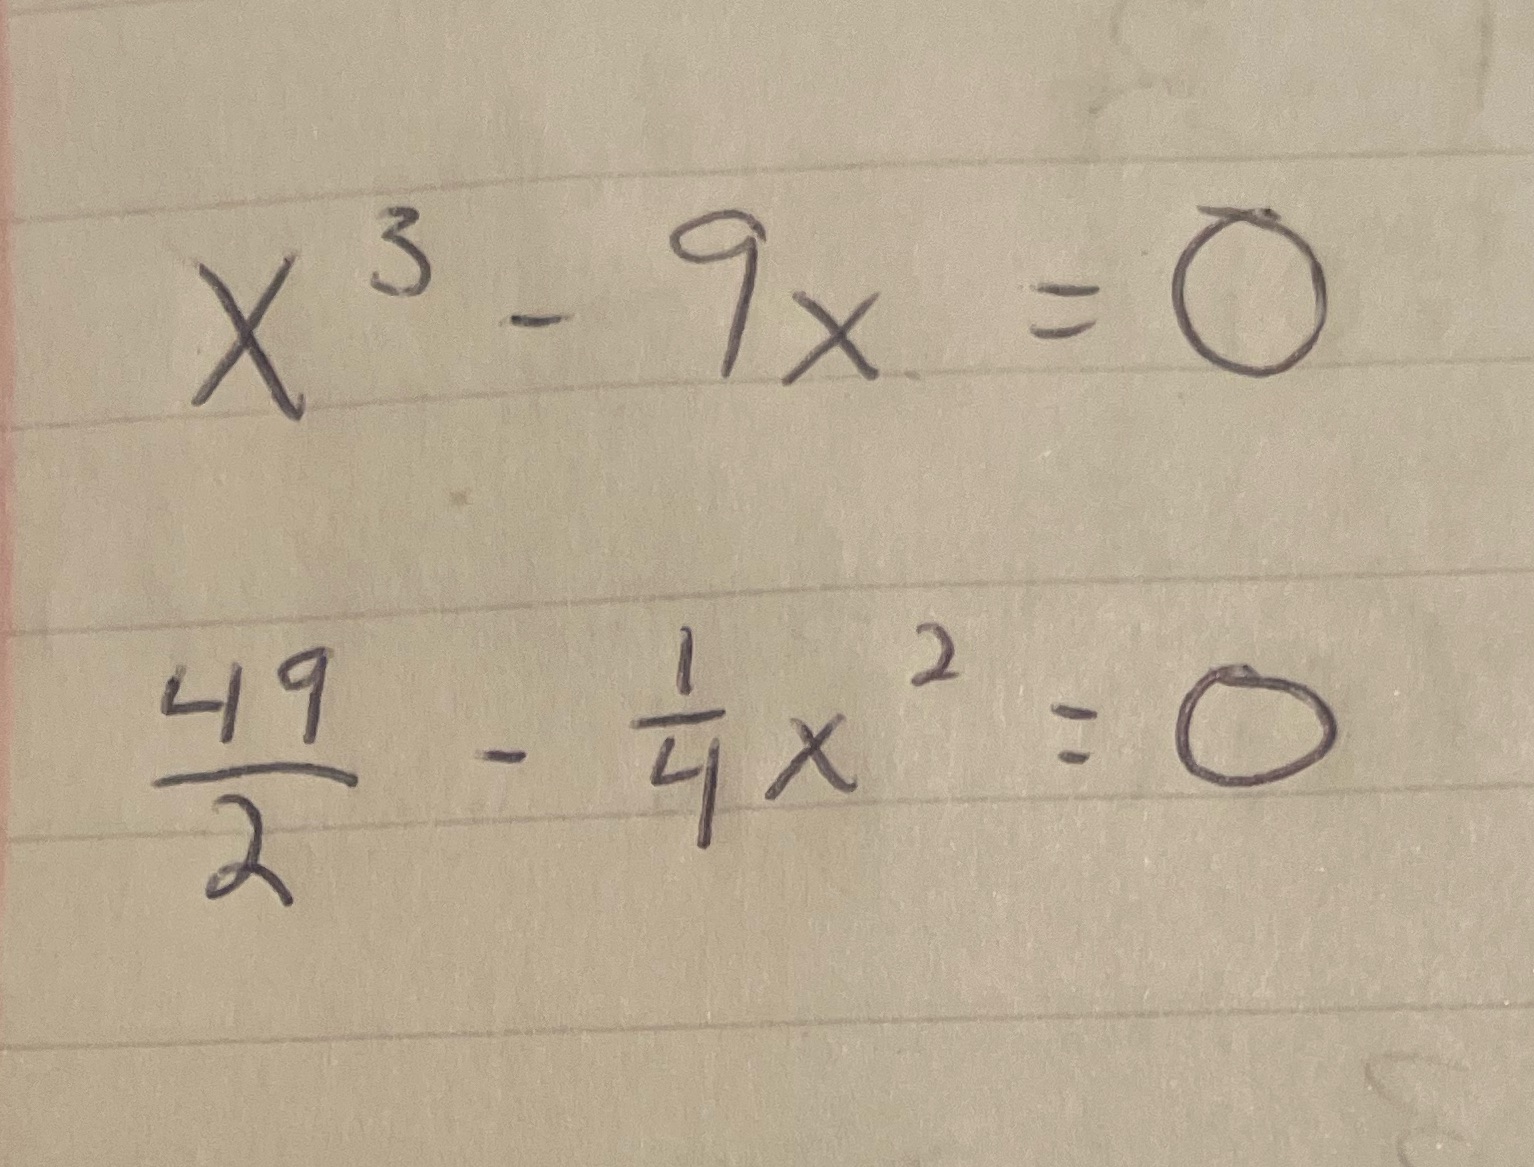 x³ - 9x = 0
49/2 - 1/4 x² = 0